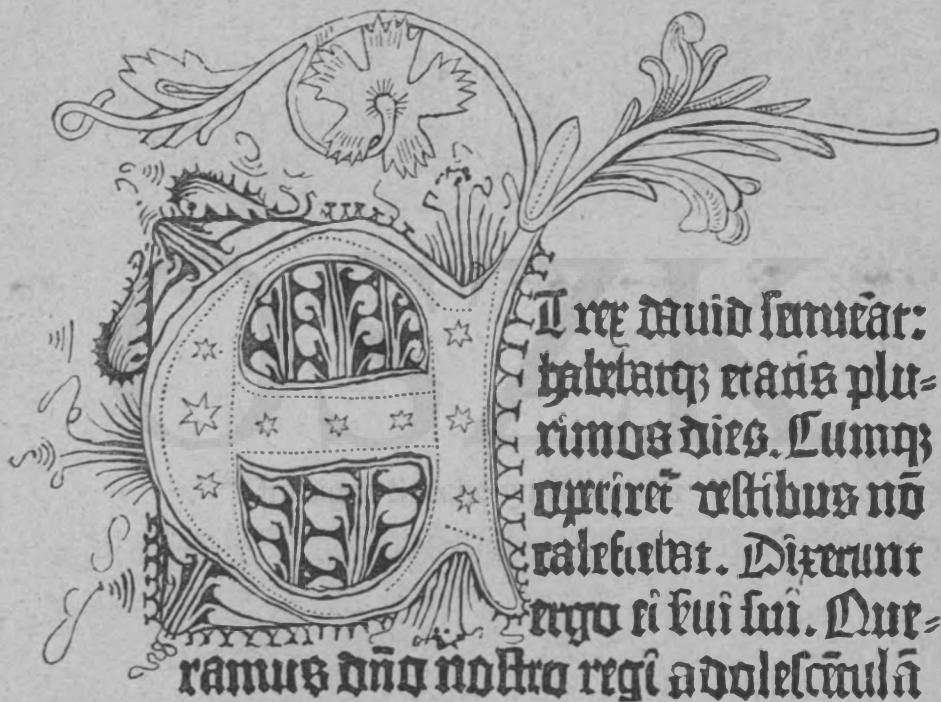 ET rex dauid senuēat:
habebatqꝫ etatis plu⸗
rimos dies. Cumqꝫ
operiret᷑ vestibus nō
calefiebat. Dixerunt
ergo ei ẜui sui. Que⸗
ramus dño nostro regi adolescētulā